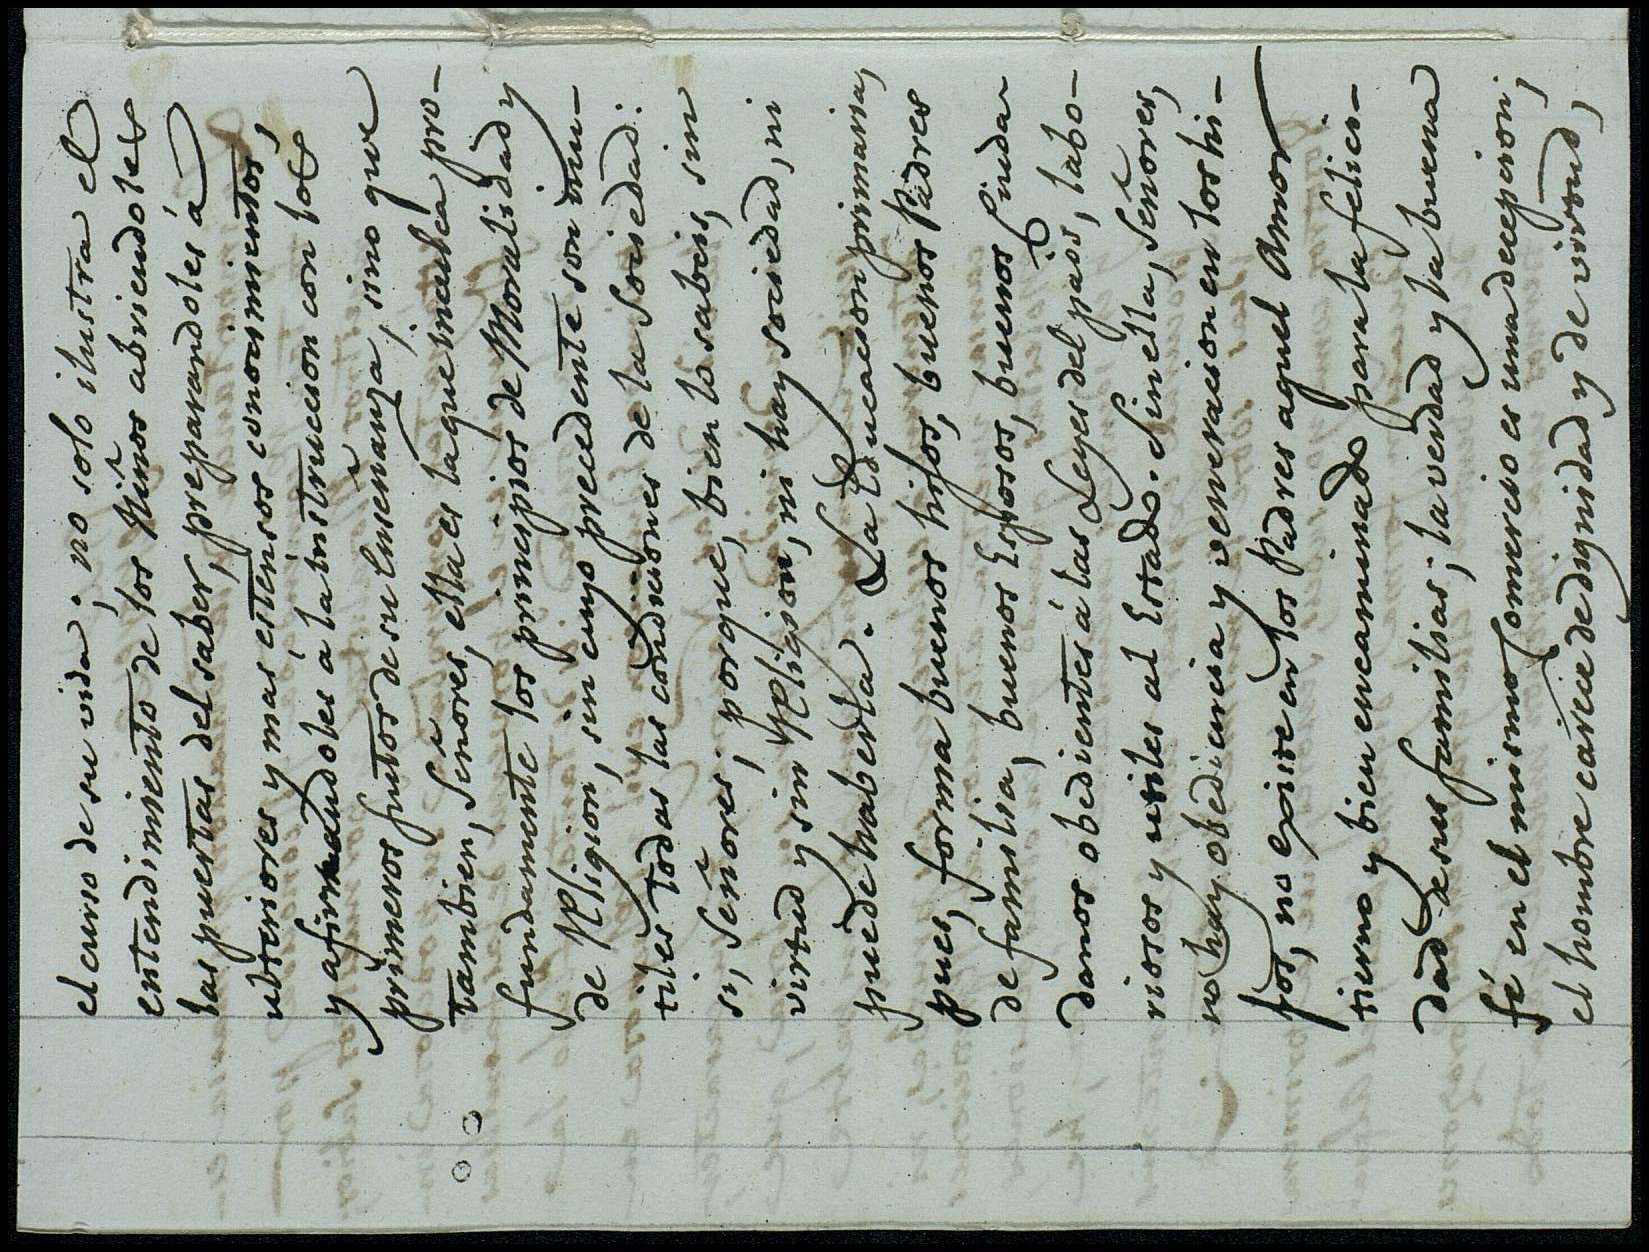 el curso de su vida; no solo ilustra el
entendimiento de los Niños abriendoles
las puertas del saber, preparandoles á
ulteriores y mas estensos conocimientos,
y afirmandoles á la instruccion con los
primeros frutos de su Enseñanza; sino que
tambien, Señores, ella es la que inculca pro-
fundamente los principios de Moralidad y
de Religion, sin cuyo precedente son inu-
tiles todas las condiciones de la Sociedad:
si, Señores; porque, bien lo sabeis, sin
virtud y sin Religion, ni hay sociedad, ni
puede haberla. La Educacion primaria,
pues, forma buenos hijos, buenos Padres
de familia, buenos Esposos, buenos Ciuda-
danos obedientes á las Leyes del pais, labo-
riosos y utiles al Estado. Sin ella, Señores,
no hay obediencia y veneracion en los hi-
jos, no existe en los Padres aquel Amor
tierno y bien encaminado para la felici-
dad de sus familias; la verdad y la buena
fé en el mismo Comercio es una decepcion,
el hombre carece de dignidad y de virtud,